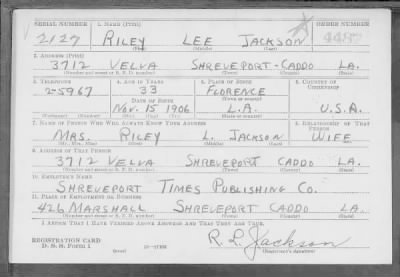 SERIAL NUMBER 1. NAME (Print) ORDER NUMBER
2127 RILEY LEE JACKSON 4487
(First) (Middle) (Last)
2. ADDRESS (Print)
3712 VELVA SHREVEPORT-CADDO LA.
(Number and street or R. F. D. number) (Town) (County) (State)
3. TELEPHONE 4. AGE IN YEARS 5. PLACE OF BIRTH 6. COUNTRY OF CITIZENSHIP
2-5967 33 FLORENCE
DATE OF BIRTH (Town or county)
NOV. 15 1906 L.A. U.S.A.
(Exchange) (Number) (Mo.) (Day) (Yr.) (State or country)
7. NAME OF PERSON WHO WILL ALWAYS KNOW YOUR ADDRESS 8. RELATIONSHIP OF THAT PERSON
MRS. RILEY L. JACKSON WIFE
(Mr., Mrs., Miss) (First) (Middle) (Last)
9. ADDRESS OF THAT PERSON
3712 VELVA SHREVEPORT CADDO LA.
(Number and street or R. F. D. number) (Town) (County) (State)
10. EMPLOYER'S NAME
SHREVEPORT TIMES PUBLISHING CO.
11. PLACE OF EMPLOYMENT OR BUSINESS
426 MARSHALL SHREVEPORT CADDO LA.
(Number and street or R. F. D. number) (Town) (County) (State)
I AFFIRM THAT I HAVE VERIFIED ABOVE ANSWERS AND THAT THEY ARE TRUE.
REGISTRATION CARD
D. S. S. Form 1 R. L. Jackson
(over) (Registrant's signature)